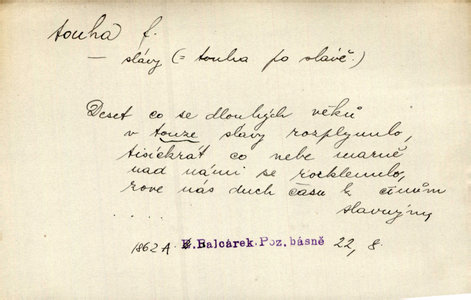 touha f.
— slávy (= touha po slávě.)
Deset co se dlouhých věků
v touze slávy rozplynulo,
tisíckrát co nebe marně
nad námi se rozklenulo,
zove nás duch času k činům
. . . . slavným,
1862 A. B. Balcárek. Poz. básně 22, 8.